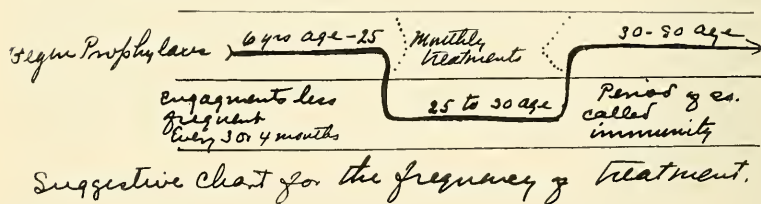 Begin Prophylaxis
6 yrs age-25
Monthly
treatments
30-80 age
engagments less
frequent
Every 3 or 4 months
25 to 30 age
Period of so.
called
immunity
Suggestive Chart for the frequency of treatment.